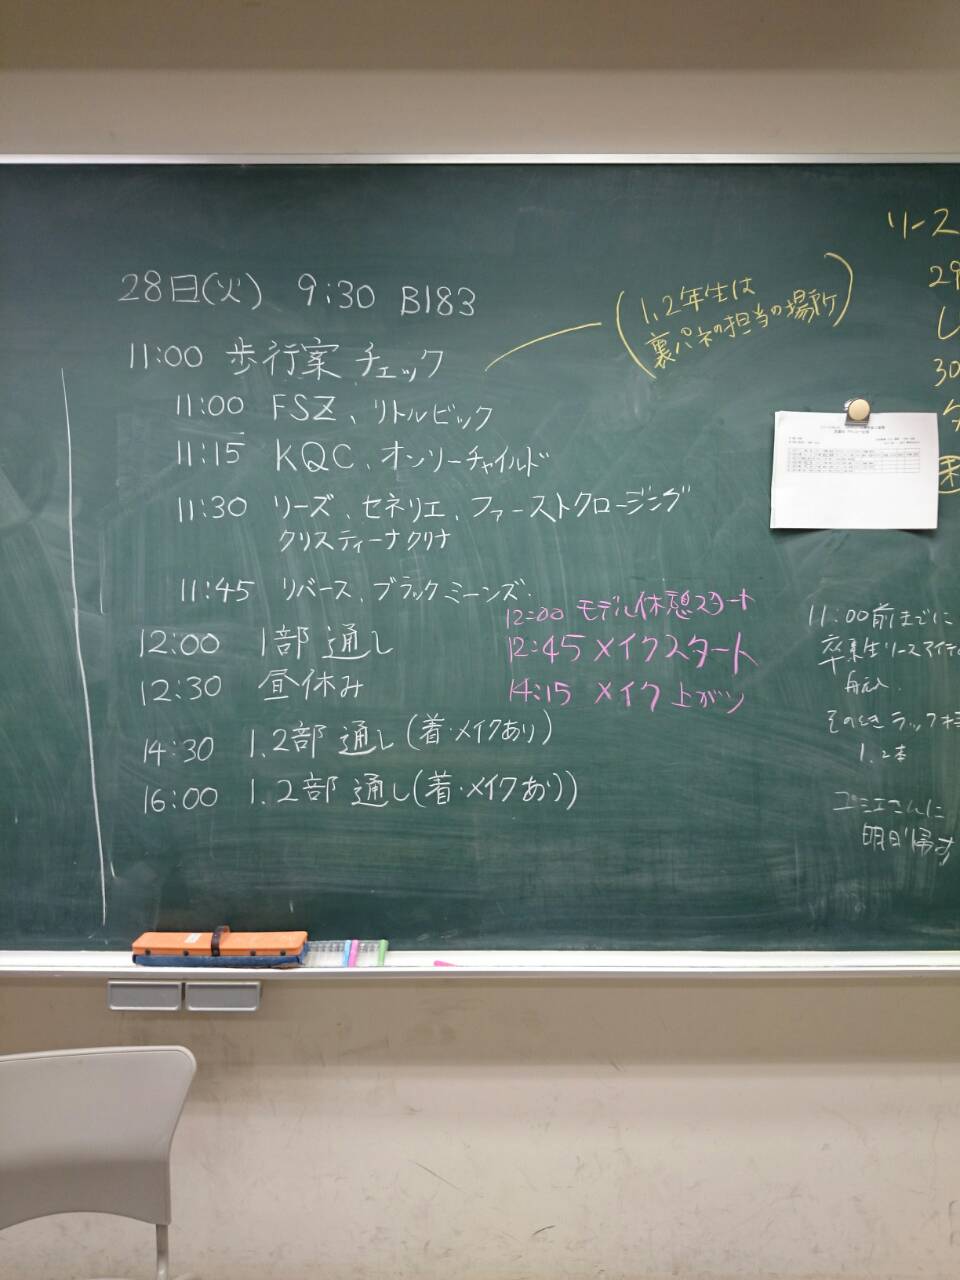 28日(火) 9:30 B183
11:00 歩行案 チェック
(1,2年生は
裏パネの担当の場所)
11:00 FSZ、リトルビック
11:15 KQC、オンリーチャイルド
11:30 リーズ、セネリエ、ファーストクロージング
クリスティーナクリナ
11:45 リバース、ブラックミーンズ.
12:00 1部 通し
12:30 昼休み
14:30 1.2部 通し(着・メイクあり)
16:00 1.2部 通し(着・メイクあり)
12:00 モデル休憩スタート
12:45 メイクスタート
14:15 メイク上がり
リース
29
し
30
11:00前までに
卒業生リースアイテ
そのときラック
1.2本
さんに
明日帰す